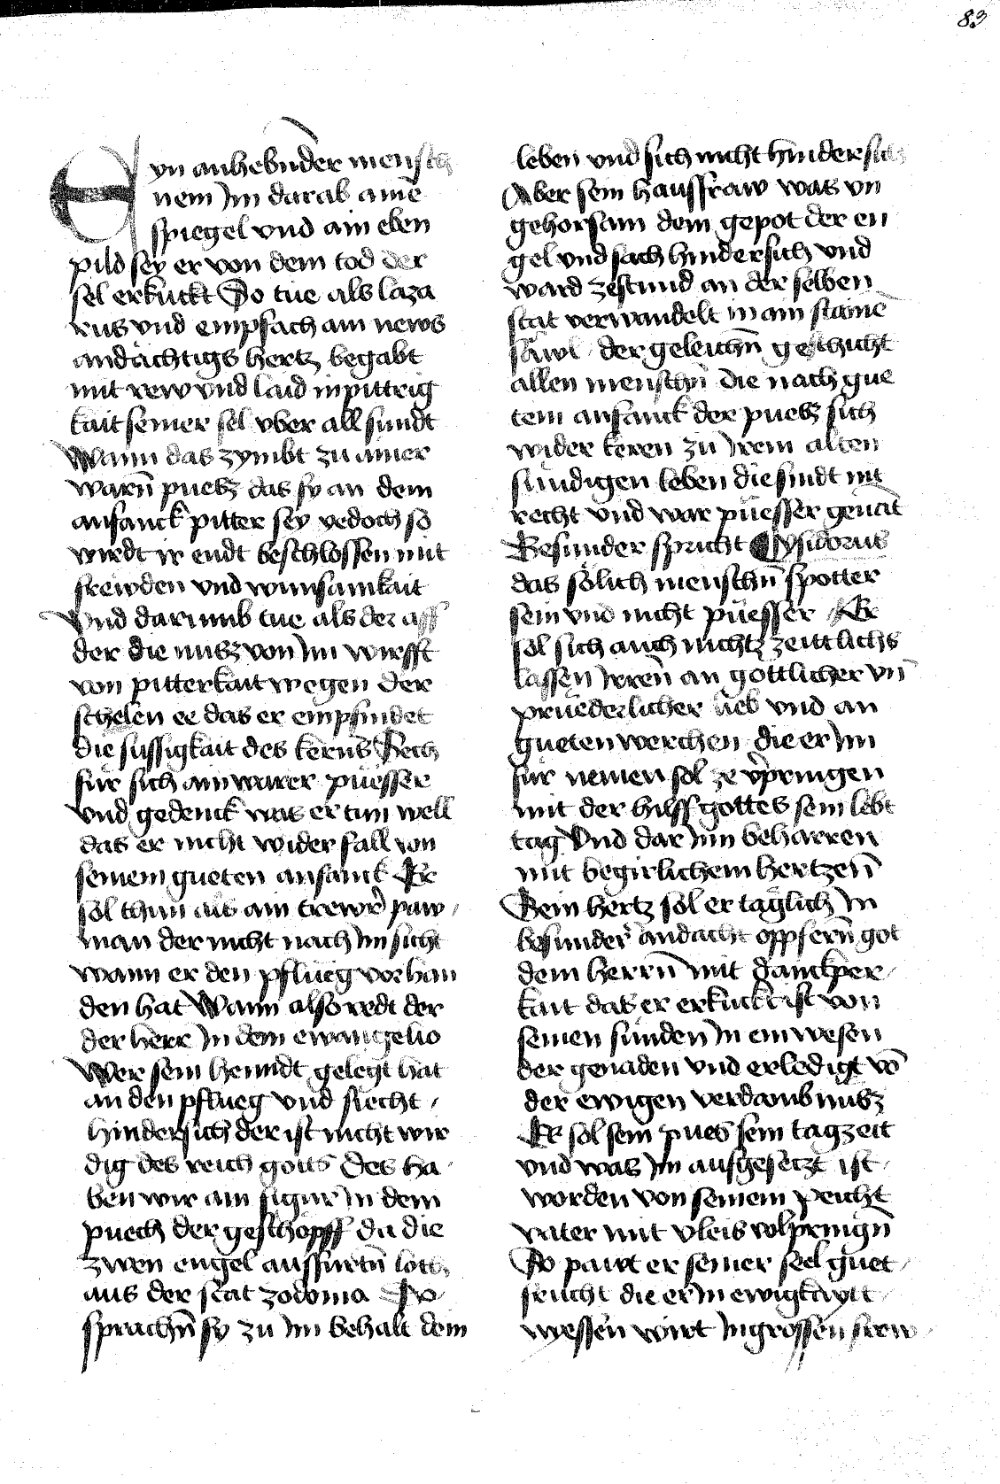 83
Eyn anhebnder mensch
nem Im darab aine
spiegel vnd ain eben
pild sey er von dem tod der
sel erkuckt So tue als laza
rus vnd empfach ain news
andächtigs hertz begabt
mit rew vnd laid in pittrig
kait seiner sel vber all sundt
Wann das zymbt zu ainer
warn̄ puesz das sy an dem
anfanck pitter sey yedoch so
wirdt ir endt beschlossen mit
frewden vnd wunsamkait
Vnd darumb tue als der aff
der die nusz von Im wirfft
von pitterkait wegen der
schelen ee das er empfindet
die sussigkait des kerns Rech
für sich ain warer püesser
vnd gedenck was er tun well
das er nicht wider fall von
seinem gueten anfanck Er
sol thun als ain trewr̄ paw
man der nicht nach Im sicht
wann er den pflueg vorhan
den hat Wann also redt der
der herr In dem ewangelio
Wer sein henndt gelegt hat
an den pflueg vnd siecht
hindersich der ist nicht wir
dig des reich gotts Des ha
ben wir ain figur In dem
puech der geschöpff da die
zwen engel ausfurtn̄ loth
aus der stat zodoma So
sprachn̄ sy zu Im behalt dem
leben vnd sich nicht hindersich
Aber sein hausfraw was vn
gehorsam dem gepot der en
gel vnd sach hindersich vnd
ward zestund an der selben
stat verwandelt in ain stainē
säwl der geleichn̄ geschicht
allen menschn̄ die nach gue
tem anfanck der puesz sich
wider keren zu Irem alten
sundigen leben die sindt nit
recht vnd war püesser genāt
Besunder spricht Ysidorus
das sölich menschn̄ spotter
sein vnd nicht püesser Er
sol sich auch nichtz zeittlichs
lassen Irren̄ an gottlicher vn̄
prüederlicher lieb vnd an
gueten werchen die er Im
für nemen sol ze v̄pringen
mit der hilff gottes sein lebt
tag Vnd dar Inn beharren
mit begirlichem hertzen̄
Sein hertz sol er täglich In
besunder̄ andacht oppfern̄ got
dem herrn̄ mit danckper
kait das er erkuckt ist von
seinen sünden In ein wesen
der genaden vnd erledigt vō
der ewigen verdambnusz
Er sol sein pues sein tagzeit
vnd was Im aufgesetzt ist
worden von seinem peicht
vater mit vleis volpringn̄
So pawt er seiner seel guet
frucht die er In ewigkaytt
nyessen wirt In grossen frew